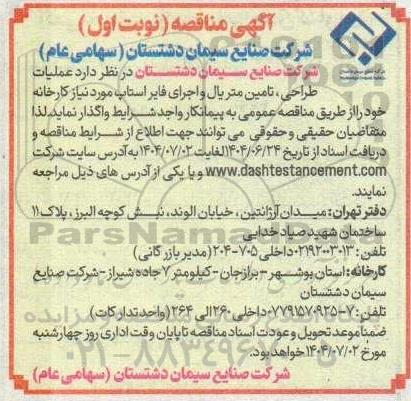 آگهی مناقصه (نوبت اول)
شرکت صنایع سیمان دشتستان (سهامی عام)
شرکت صنایع سیمان دشتستان در نظر دارد عملیات
طراحی، تامین متریال و اجرای فایر استاپ مورد نیاز کارخانه
خود را از طریق مناقصه عمومی به پیمانکار واجد شرایط واگذار نماید. لذا
متقاضیان حقیقی و حقوقی می توانند جهت اطلاع از شرایط مناقصه و
دریافت اسناد از تاریخ ۱۴۰۴/۰۶/۲۴ لغایت ۱۴۰۴/۰۷/۰۲ به آدرس سایت شرکت
www.dashtestancement.com و یا یکی از آدرس های ذیل مراجعه
نمایند.
دفتر تهران: میدان آرژانتین، خیابان الوند، نبش کوچه البرز، پلاک ۱۱
ساختمان شهید صیاد خدایی
تلفن: ۰۲۱۹۲۰۰۳۰۱۳ داخلی ۷۰۵-۲۰۴ (مدیر بازرگانی)
کارخانه: استان بوشهر - برازجان - کیلومتر ۷ جاده شیراز - شرکت صنایع
سیمان دشتستان
تلفن: ۷-۰۷۷۹۱۵۷۰۹۲۵ داخلی ۲۶۰ الی ۲۶۴ (واحد تدارکات)
ضمنا موعد تحویل و عودت اسناد مناقصه تا پایان وقت اداری روز چهارشنبه
مورخ ۱۴۰۴/۰۷/۰۲ خواهد بود.
شرکت صنایع سیمان دشتستان (سهامی عام)
ParsNamad
۰۲۱-۸۸۳۴۹۶۷